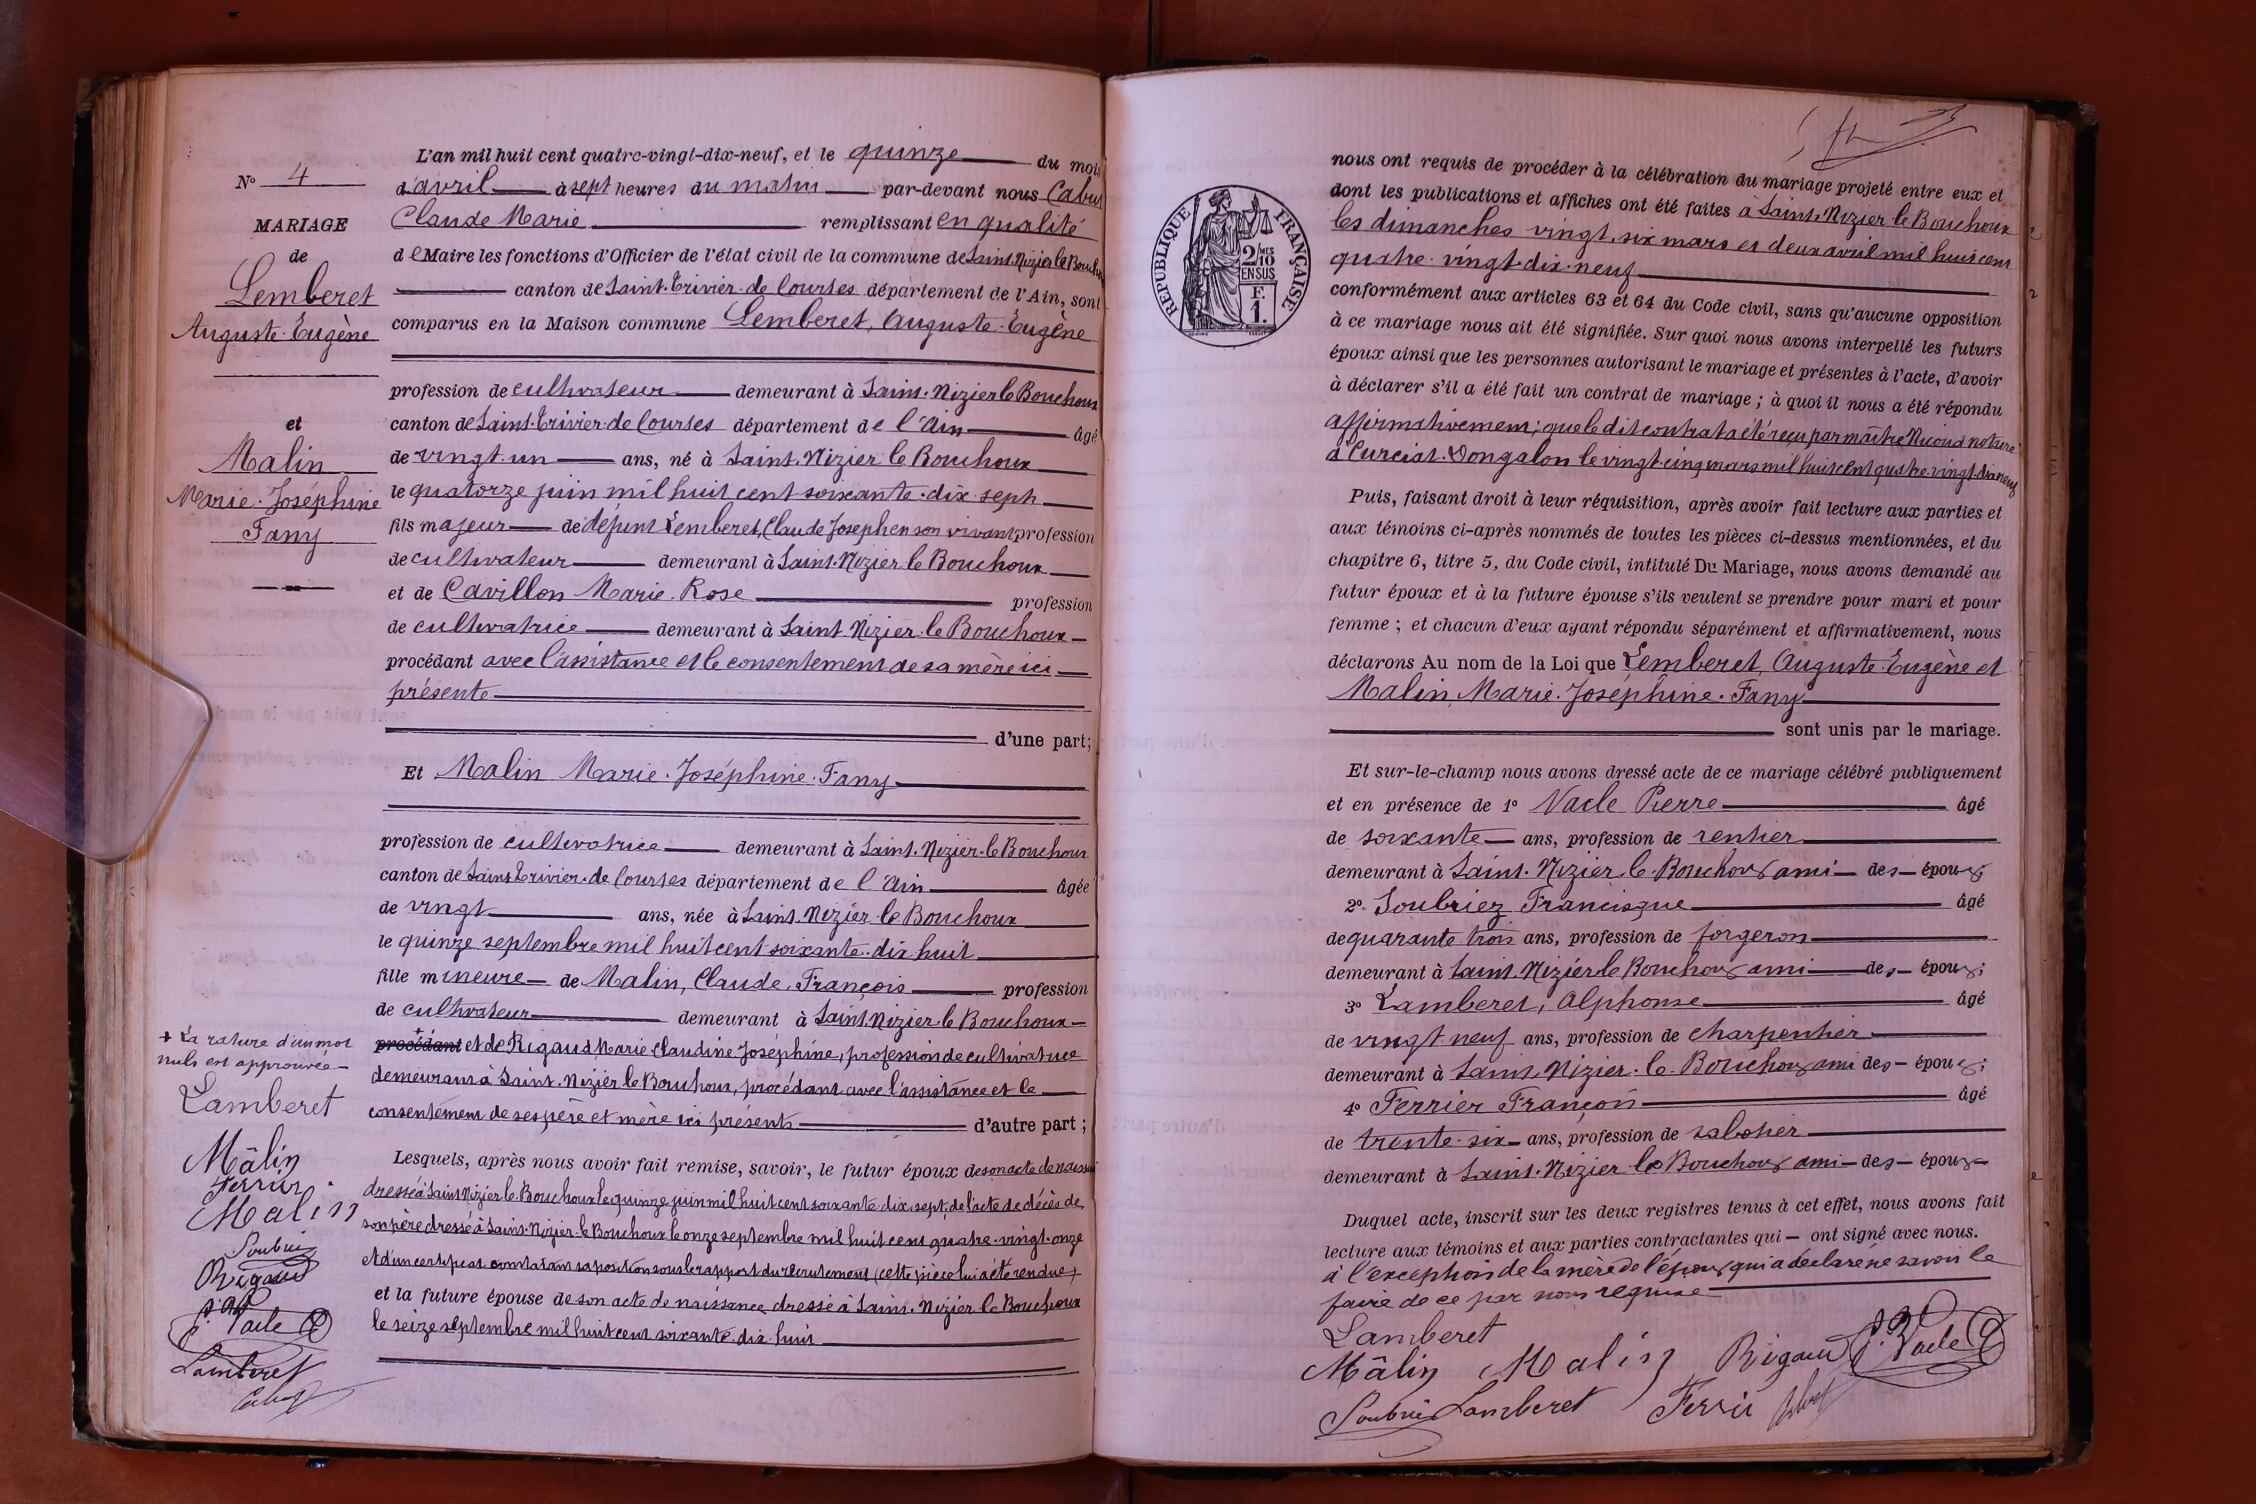 N° 4
MARIAGE
de
Lemberet
Auguste Eugène
et
Malin
Marie Joséphine
Fany
L'an mil huit cent quatre-vingt-dix-neuf, et le quinze du mois
d'avril à sept heures du matin par-devant nous Cabut
Claude Marie remplissant en qualité
de Maire les fonctions d'Officier de l'état civil de la commune de Saint-Nizier le Bouchoux
canton de Saint-Trivier-de Courtes département de l'Ain, sont
comparus en la Maison commune Lemberet, Auguste Eugène
profession de cultivateur demeurant à Saint-Nizier le Bouchoux
canton de Saint-Trivier-de Courtes département de l'Ain âgé
de vingt-un ans, né à Saint-Nizier le Bouchoux
le quatorze juin mil huit cent soixante-dix-sept
fils majeur de défunt Lemberet, Claude Joseph en son vivant profession
de cultivateur demeurant à Saint-Nizier le Bouchoux
et de Cavillon Marie Rose profession
de cultivatrice demeurant à Saint Nizier-le Bouchoux
procédant avec l'assistance et le consentement de sa mère ici
présente
d'une part;
Et Malin Marie Joséphine Fany
profession de cultivatrice demeurant à Saint-Nizier-le Bouchoux
canton de Saint Trivier-de Courtes département de l'Ain âgée
de vingt ans, née à Saint-Nizier-le Bouchoux
le quinze septembre mil huit cent soixante-dix huit
fille mineure de Malin, Claude, François profession
de cultivateur demeurant à Saint-Nizier-le Bouchoux
procédant et de Rigaud Marie Claudine Joséphine, profession de cultivatrice
demeurant à Saint-Nizier le Bouchoux, procédant avec l'assistance et le
consentement de ses père et mère ici présents d'autre part ;
Lesquels, après nous avoir fait remise, savoir, le futur époux de son acte de naissance
dressé à Saint Nizier le Bouchoux le quinze juin mil huit cent soixante-dix-sept, de l'acte de décès de
son père dressé à Saint-Nizier-le Bouchoux le onze septembre mil huit cent quatre-vingt-onze
et d'un certificat constatant sa position sous le rapport du recrutement (cette pièce lui a été rendue)
et la future épouse de son acte de naissance dressé à Saint-Nizier le Bouchoux
le seize septembre mil huit cent soixante-dix-huit
+ La rature d'un mot
nuls est approuvée
Lamberet
Mâlin
Ferrier
Malin
Soubrié
Rigaud
P. Vacle
Lamberet
Cabut
RÉPUBLIQUE FRANÇAISE
2/10 MES
EN SUS
F.
1.
nous ont requis de procéder à la célébration du mariage projeté entre eux et
dont les publications et affiches ont été faites à Saint-Nizier le Bouchoux
les dimanches vingt-six mars et deux avril mil huit cent
quatre-vingt-dix-neuf
conformément aux articles 63 et 64 du Code civil, sans qu'aucune opposition
à ce mariage nous ait été signifiée. Sur quoi nous avons interpellé les futurs
époux ainsi que les personnes autorisant le mariage et présentes à l'acte, d'avoir
à déclarer s'il a été fait un contrat de mariage ; à quoi il nous a été répondu
affirmativement; que le dit contrat a été reçu par maître Nicoud notaire
à Curciat-Dongalon le vingt-cinq mars mil huit cent quatre-vingt-dix neuf
Puis, faisant droit à leur réquisition, après avoir fait lecture aux parties et
aux témoins ci-après nommés de toutes les pièces ci-dessus mentionnées, et du
chapitre 6, titre 5, du Code civil, intitulé Du Mariage, nous avons demandé au
futur époux et à la future épouse s'ils veulent se prendre pour mari et pour
femme ; et chacun d'eux ayant répondu séparément et affirmativement, nous
déclarons Au nom de la Loi que Lemberet, Auguste Eugène et
Malin, Marie Joséphine Fany
sont unis par le mariage.
Et sur-le-champ nous avons dressé acte de ce mariage célébré publiquement
et en présence de 1° Vacle Pierre âgé
de soixante ans, profession de rentier
demeurant à Saint-Nizier-le-Bouchoux ami des époux;
2° Soubriez Francisque âgé
de quarante trois ans, profession de forgeron
demeurant à Saint-Nizier le Bouchoux ami des époux;
3° Lamberet, Alphonse âgé
de vingt-neuf ans, profession de charpentier
demeurant à Saint-Nizier-le-Bouchoux ami des époux;
4° Ferrier François âgé
de trente-six ans, profession de sabotier
demeurant à Saint-Nizier-le Bouchoux ami des époux
Duquel acte, inscrit sur les deux registres tenus à cet effet, nous avons fait
lecture aux témoins et aux parties contractantes qui ont signé avec nous.
à l'exception de la mère de l'époux qui a déclaré ne savoir le
faire de ce par nous requise
Lamberet
Mâlin Malin Rigaud P. Vacle
Soubrié Lamberet Ferrié Cabut